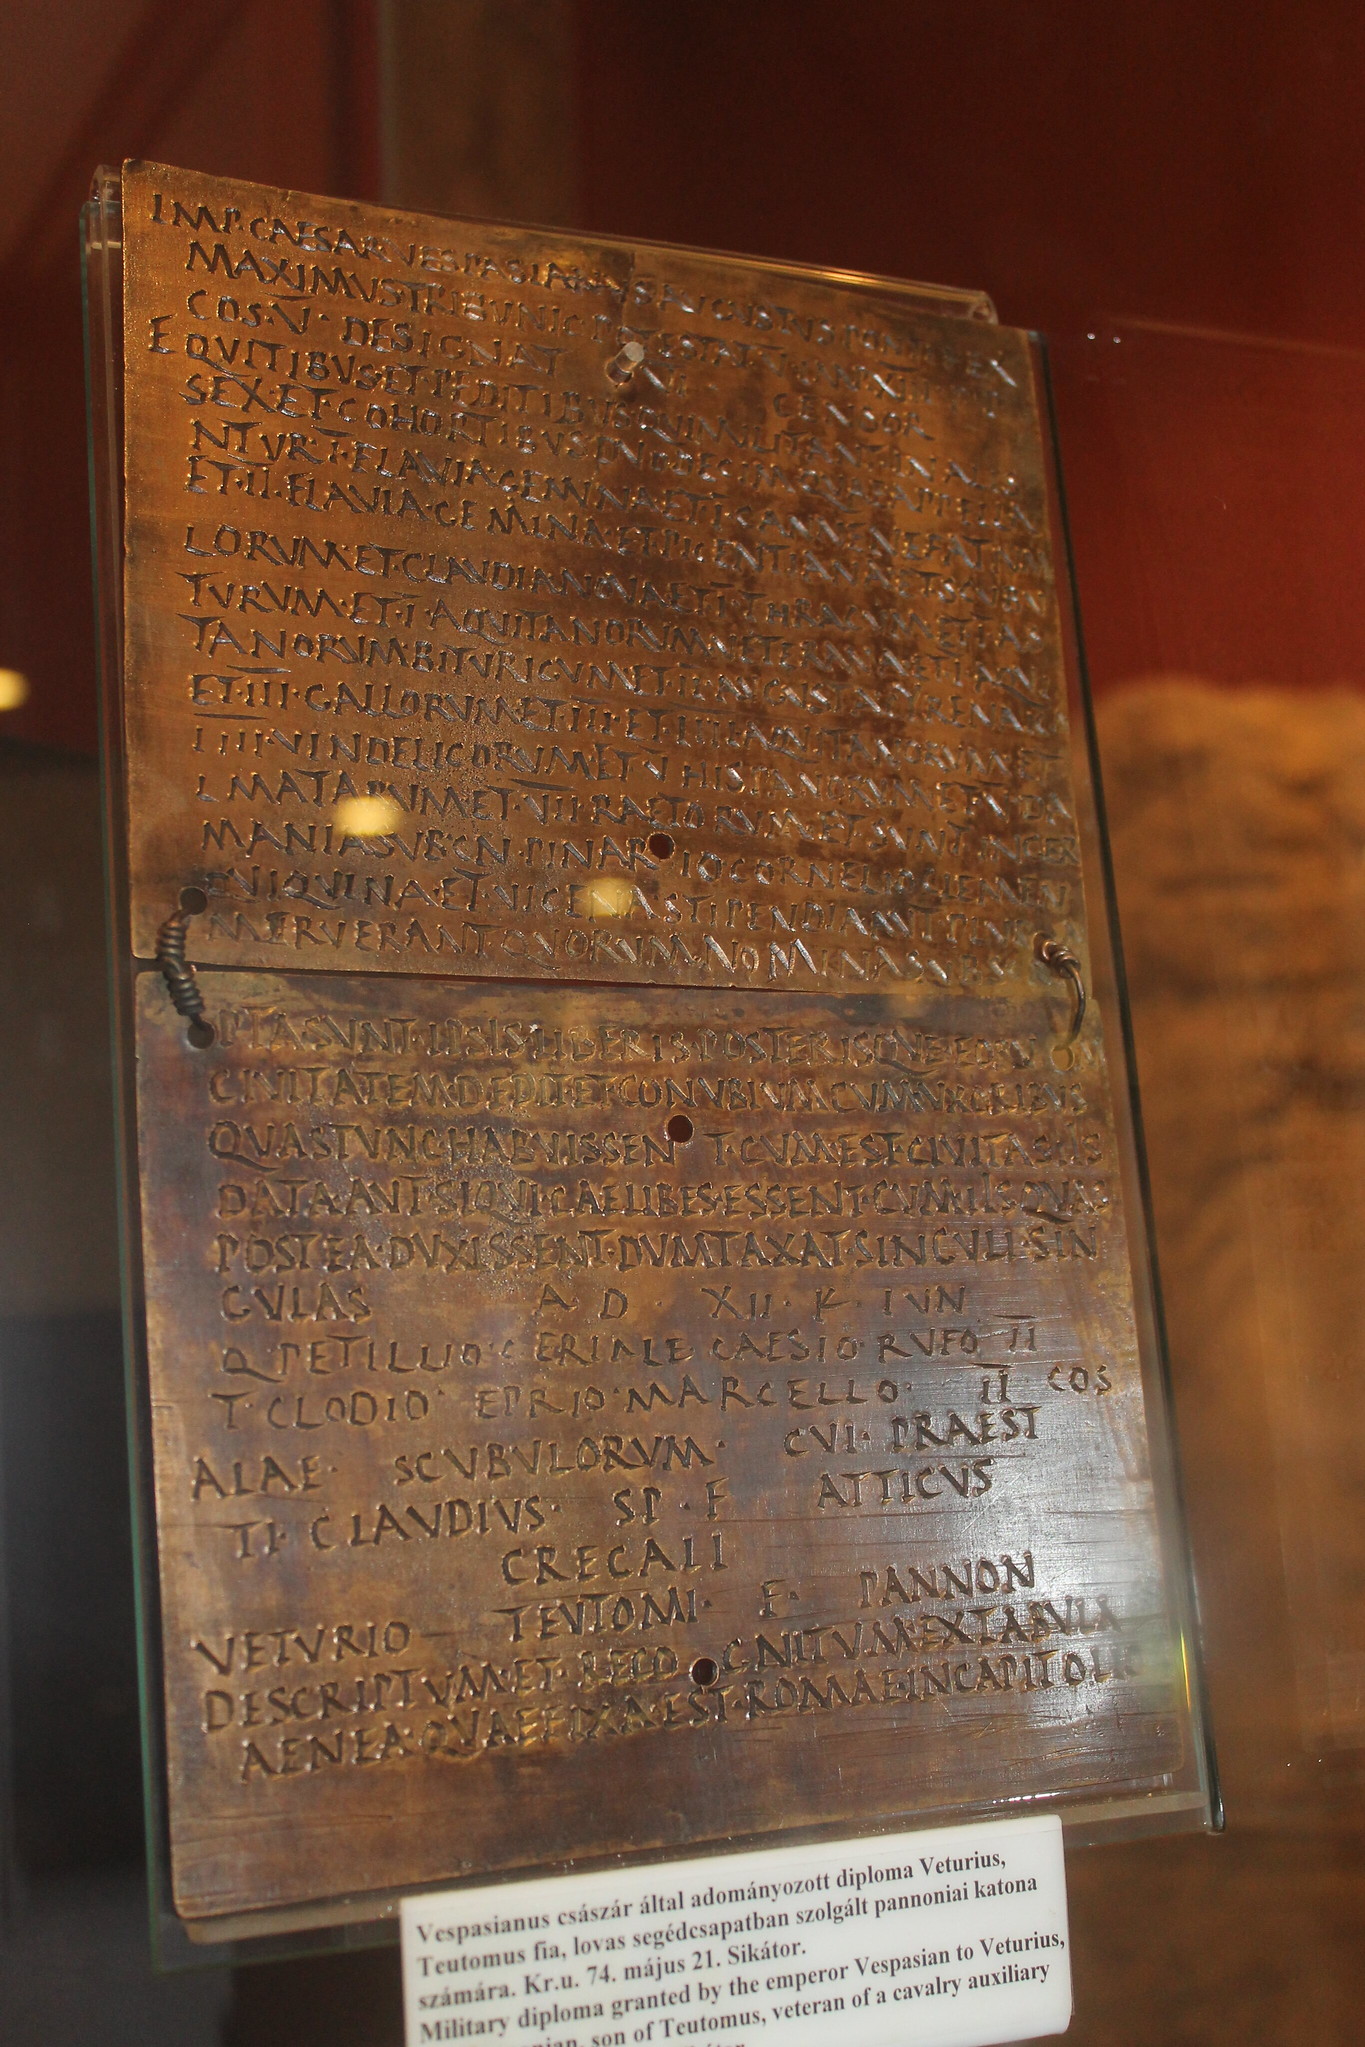 IMP·CAESAR·VESPASIANVS·AVGVSTVS PONTIFEX
MAXIMVSTRIBVNIC POTESTAT
COS·V· DESIGNAT VI CENSOR
EQVITIBVS·ET PEDITIBVS·QVI·MILITANT·IN·ALIS
SEX·ET·COHORTIBVS·DVODECIM·QVAE APPELLA
NTVR·I·FLAVIA·GEMINA·ET I CANNENEFATIVM
ET·II·FLAVIA·GEMINA·ET·PICENTIANA·ET·SCVBV
LORVM·ET·CLAVDIA NOVA·ET I THRACVM·ET I AS
TVRVM·ET·I AQVITANORVM·VETERANA·ET I AQVI
TANORVM·BITVRICVM·ET·II·AVGVSTA
ET·III·GALLORVM·ET·III·ET·IIII AQVITANORVM·ET
IIII·VINDELICORVM·ET V HISPANORVM·ET V DA
LMATARVM·ET·VII·RAETORVM·ET·SVNT IN GER
MANIA SVB·CN·PINARIO CORNELIO CLEMEN
QVI QVINA·ET·VICENA STIPENDIA AVT PLVRA
MERVERANT QVORVM·NOMINA SVBSCRI
PTA SVNT·IPSIS LIBERIS·POSTERISQVE·EORVM
CIVITATEM·DEDIT·ET·CONVBIVM CVM
QVAS TVNC HABVISSENT·CVM EST·CIVITAS IIS
DATA AVT SIQVI·CAELIBES·ESSENT·CVM·IIS QVAS
POSTEA·DVXISSENT·DVMTAXAT·SINGVLI·SIN
GVLAS A D · XII · K · IVN
Q·PETILLIO·CERIALE CAESIO·RVFO II
T·CLODIO· EPRIO·MARCELLO· II COS
ALAE· SCVBVLORVM· CVI· PRAEST
TI·CLAVDIVS· SP · F ATTICVS
GREGALI
VETVRIO TEVTOMI· F· PANNON
DESCRIPTVM·ET·RECOGNITVM·EX TABVLA
AENEA·QVAE FIXA·EST·ROMAE·IN CAPITOLIO
Vespasianus császár által adományozott diploma Veturius,
Teutomus fia, lovas segédcsapatban szolgált pannoniai katona
számára. Kr.u. 74. május 21. Sikátor.
Military diploma granted by the emperor Vespasian to Veturius,
son of Teutomus, veteran of a cavalry auxiliary